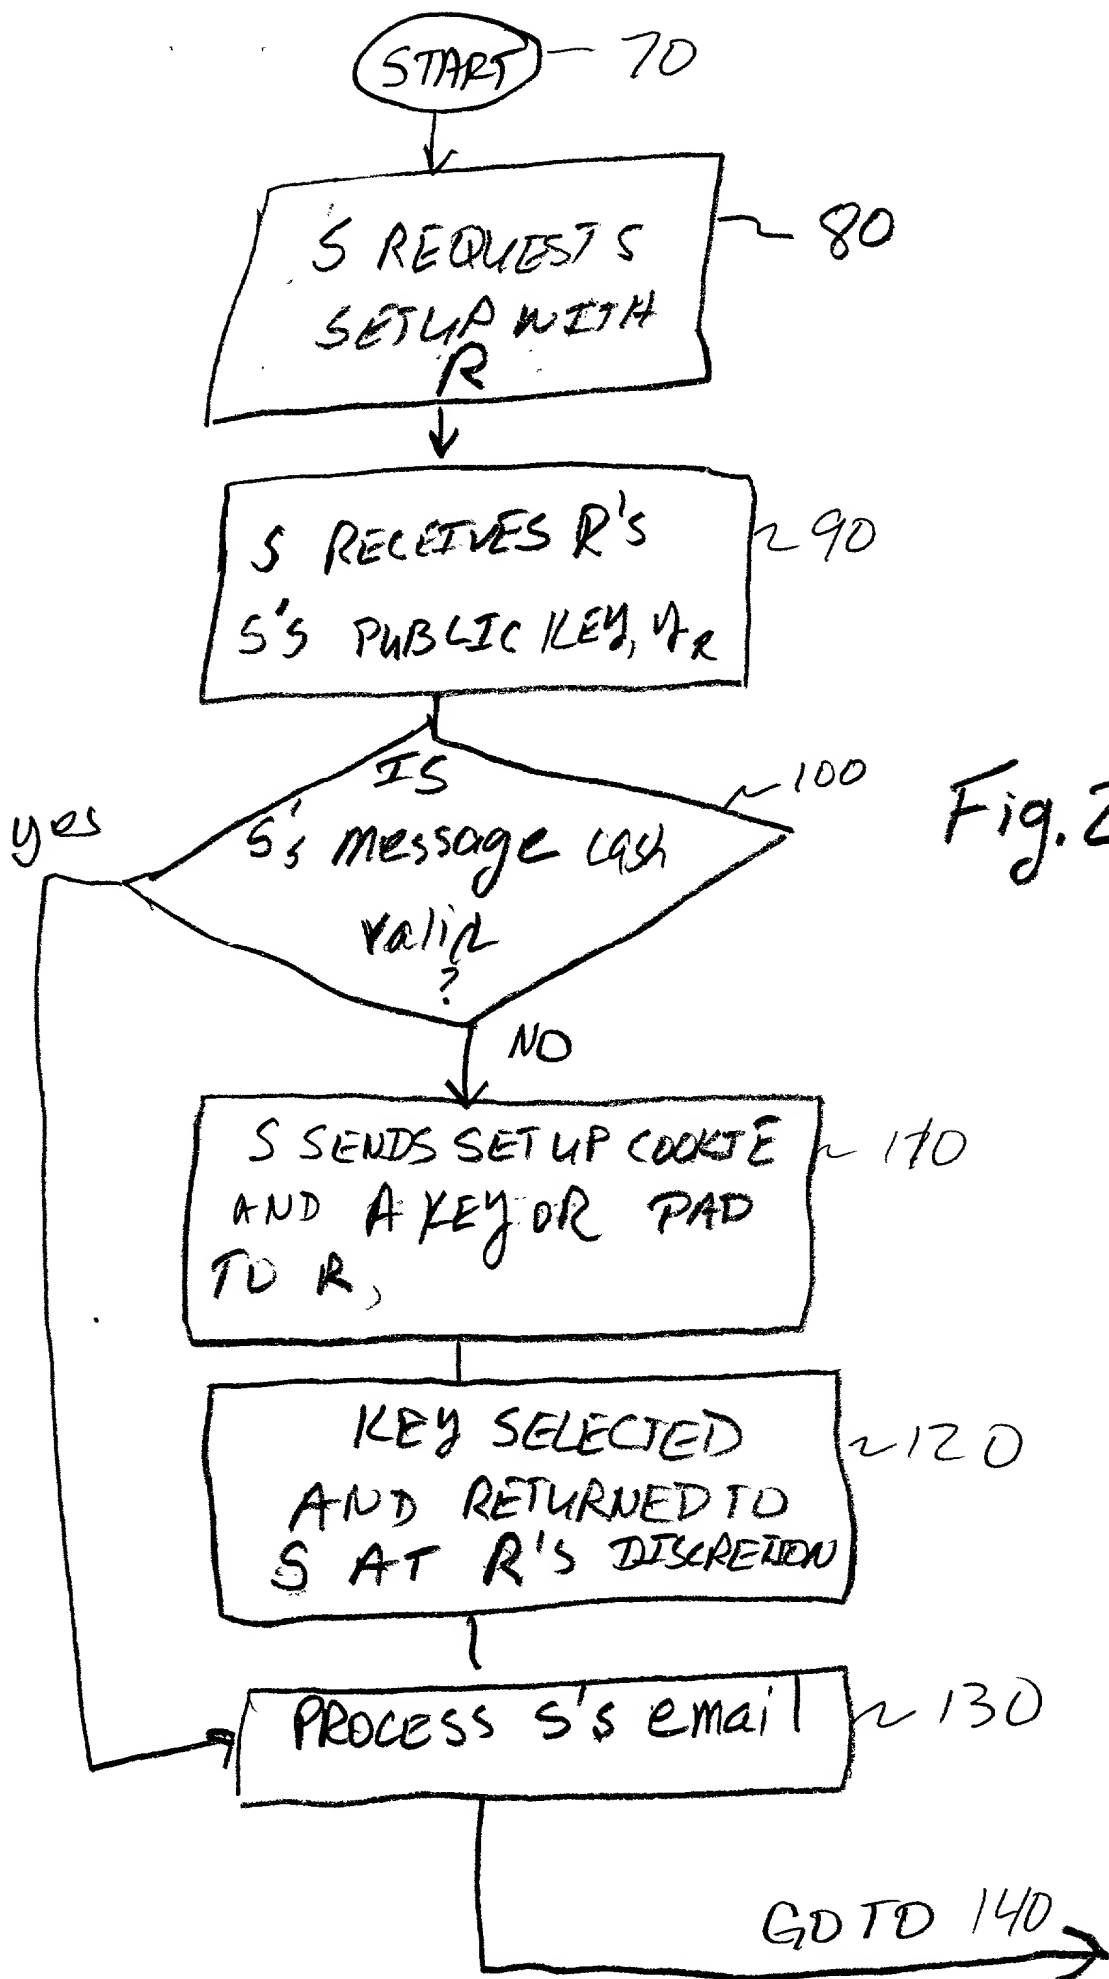 START 70
S REQUESTS
SETUP WITH
R
80
S RECEIVES R'S
S'S PUBLIC KEY, y_R
90
IS
S's message cash
valid
?
100
yes
Fig. 2
NO
S SENDS SETUP COOKIE
AND A KEY OR PAD
TO R,
110
KEY SELECTED
AND RETURNED TO
S AT R'S DISCRETION
120
PROCESS S's email
130
GO TO 140